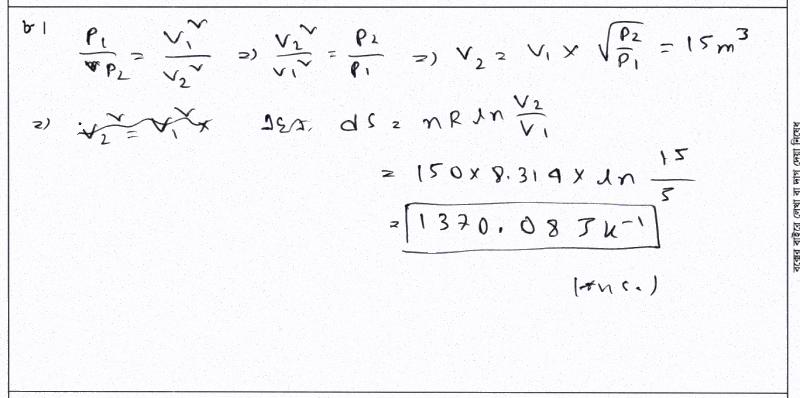 ৮। P₁/P₂ = V₁²/V₂² ⇒ V₂²/V₁² = P₂/P₁ ⇒ V₂ = V₁ × √(P₂/P₁) = 15 m³
dS = nR ln V₂/V₁
= 150 × 8.314 × ln 15/5
= 1370.08 JK⁻¹
(Ans.)
বক্সের বাইরে লেখা বা দাগ দেয়া নিষেধ